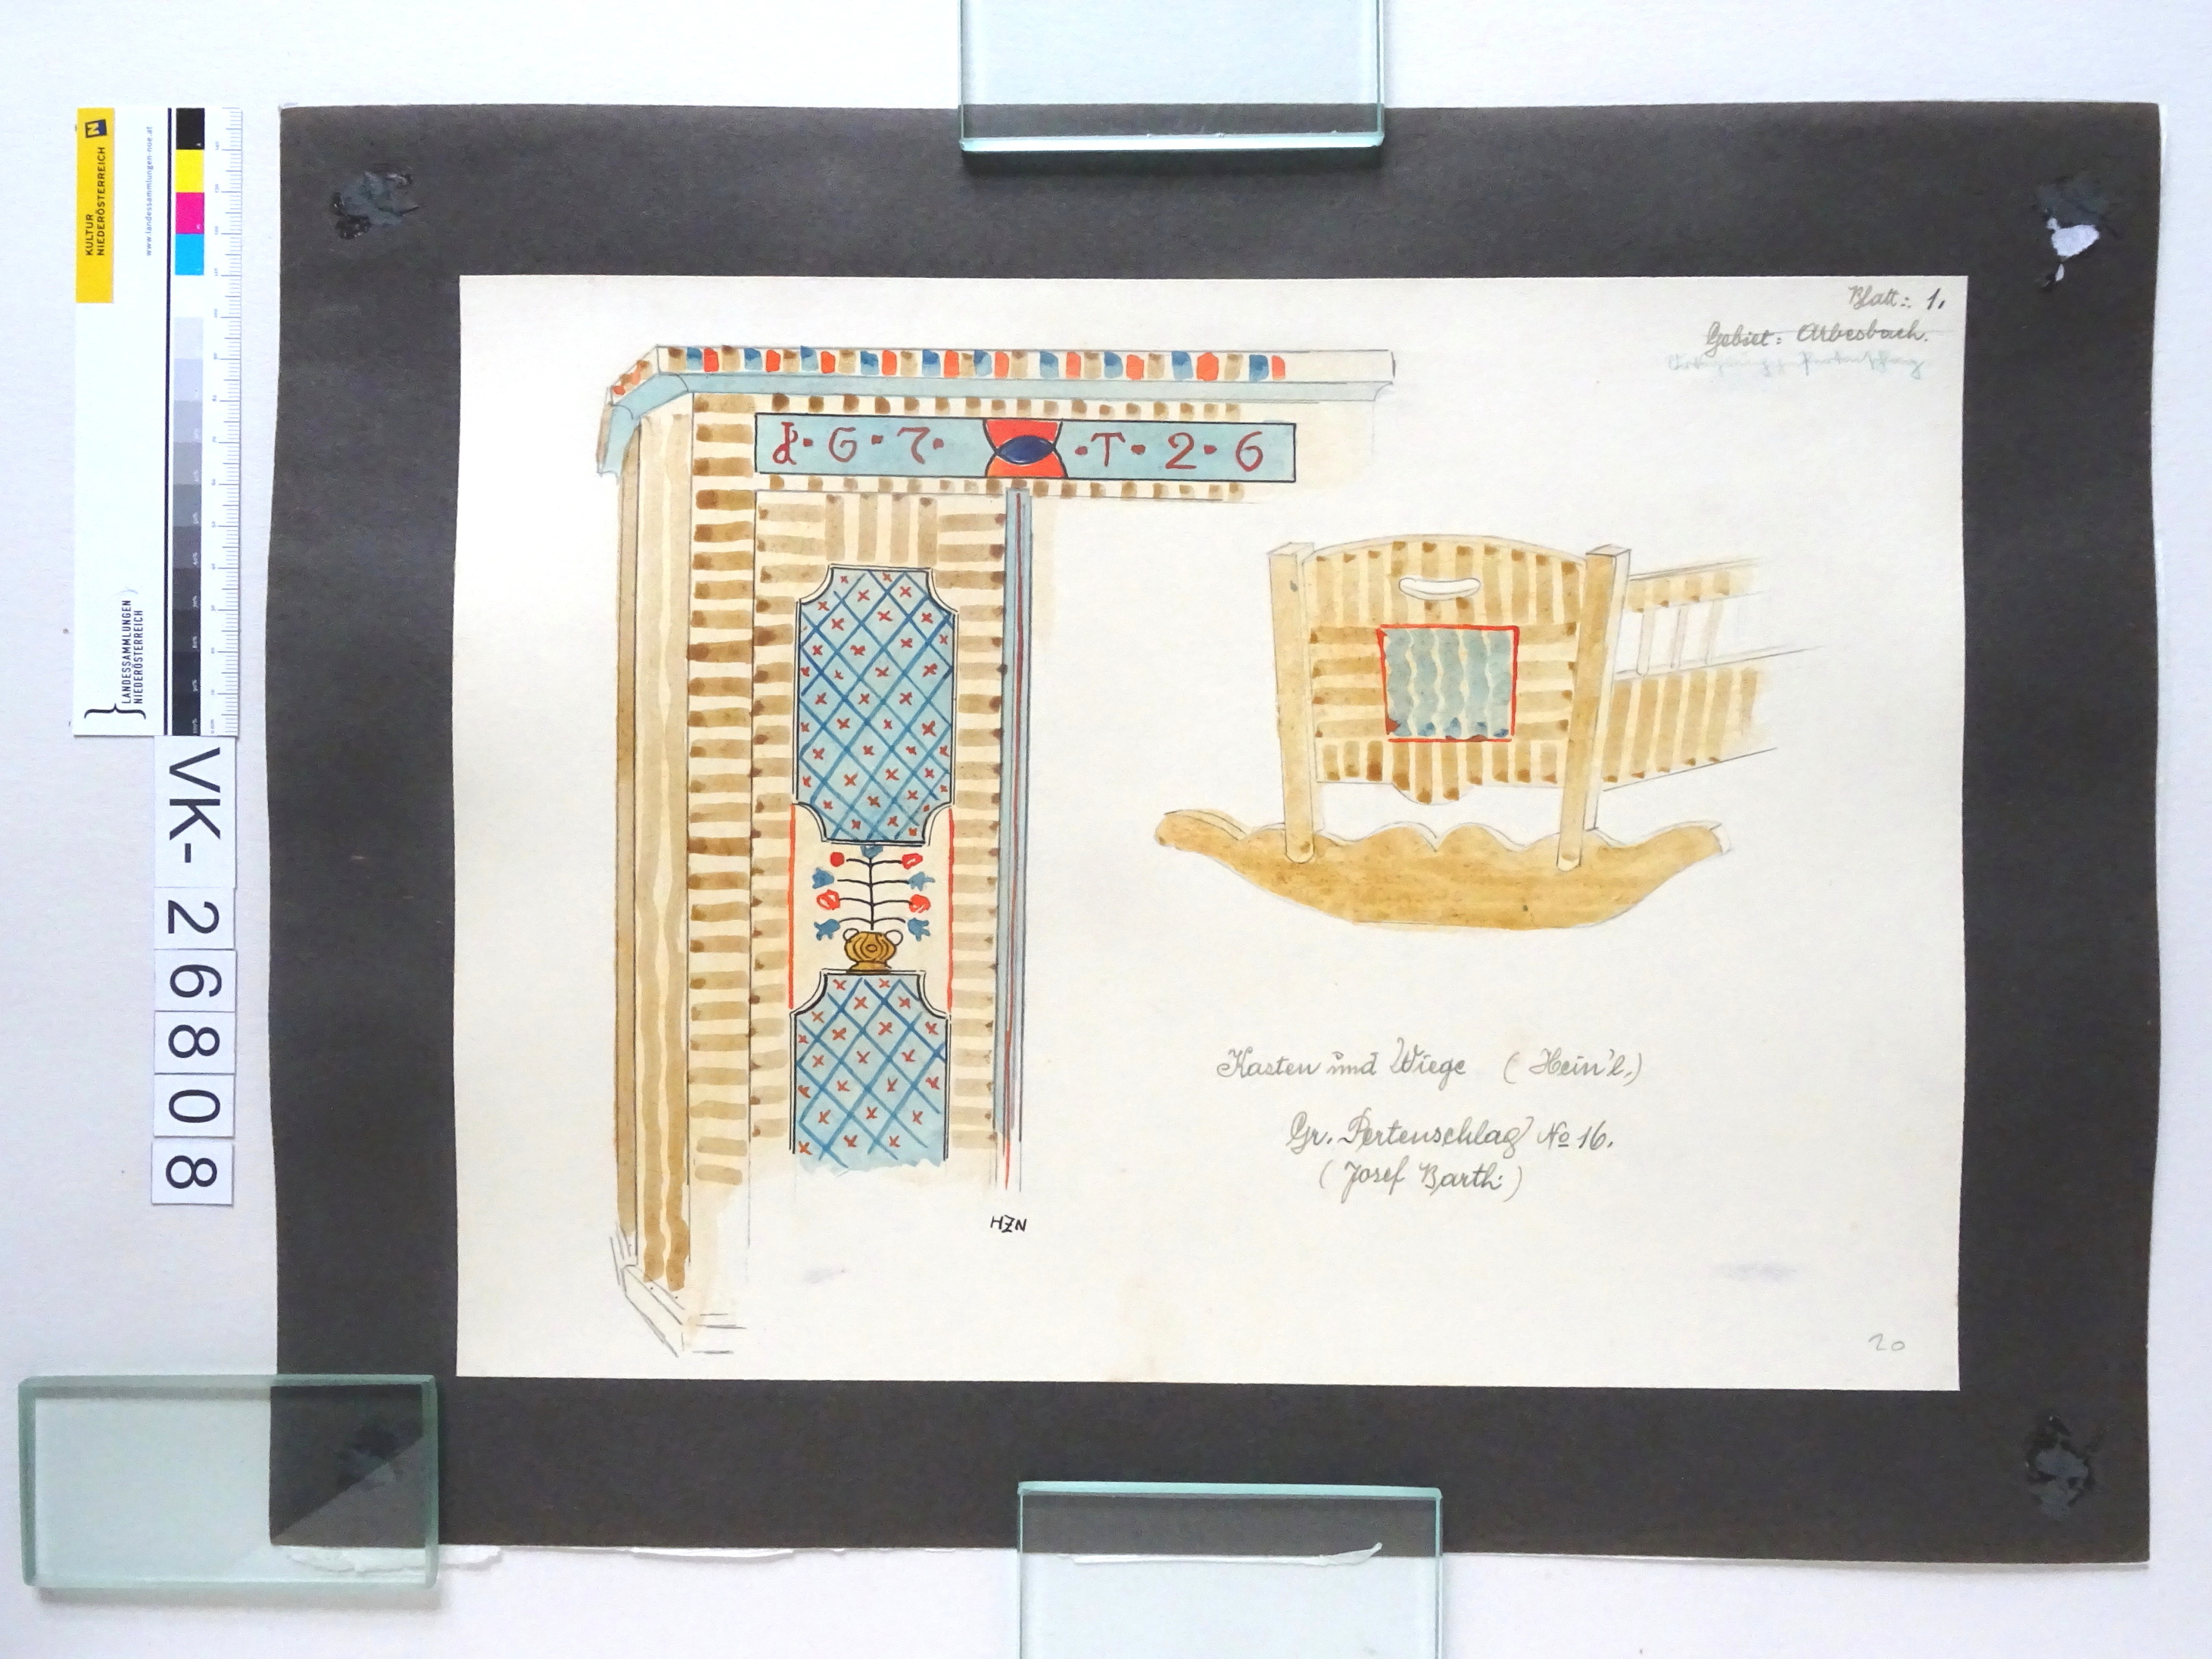 Blatt: 1.
Gebiet: Arbesbach.
G · 7 ·
· T · 2 · 6
Kasten und Wiege (Hein'l.)
Gr. Pertenschlag No 16.
(Josef Barth:)
HZN
20
KULTUR
NIEDERÖSTERREICH
N
www.landessammlungen-noe.at
LANDESSAMMLUNGEN
NIEDERÖSTERREICH
VK-26808